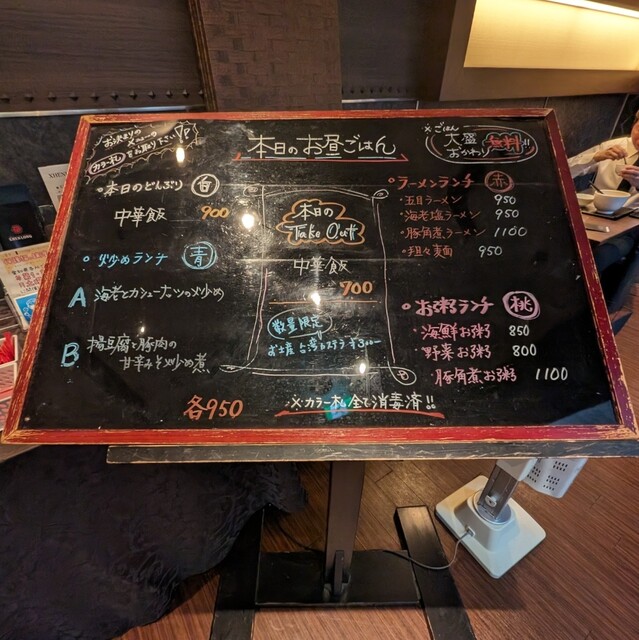 お決まりの
メニューの
カラー札をお取り下さい!?
本日のお昼ごはん
※ごはん
大盛 無料!!
おかわり
・本日のどんぶり 白
中華飯 900
・炒めランチ 青
A 海老とカシューナッツの炒め
B 揚豆腐と豚肉の
甘辛みそ炒め煮
各950
本日の
Take Out
中華飯
900
数量限定
・ラーメンランチ 赤
・五目ラーメン 950
・海老塩ラーメン 950
・豚角煮ラーメン 1100
・担々麺 950
・お粥ランチ 桃
・海鮮お粥 850
・野菜お粥 800
豚角煮お粥 1100
※カラー札全て消毒済!!